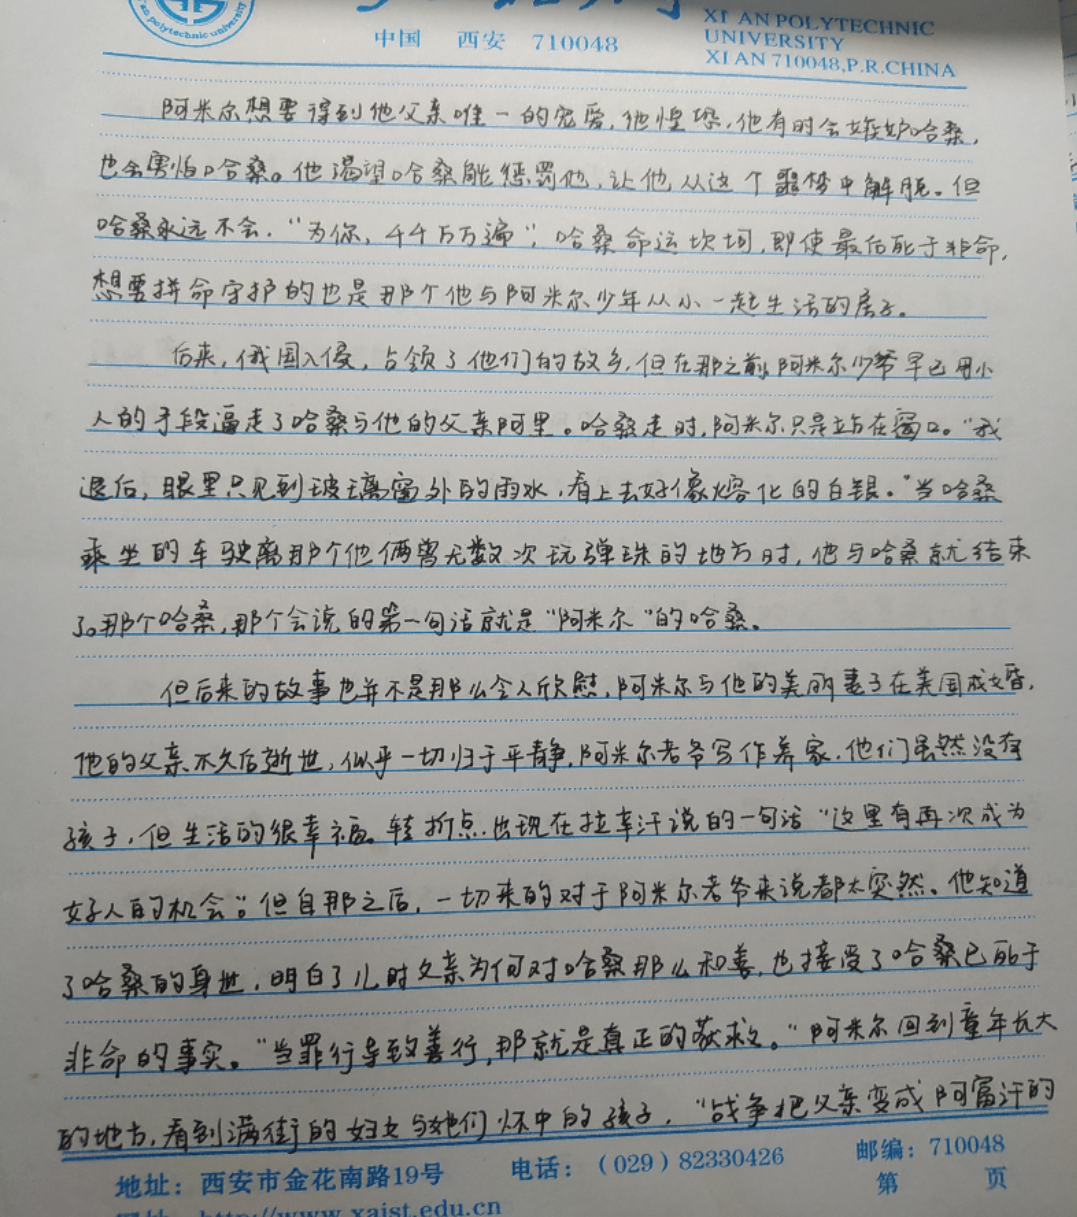 an polytechnic university
中国 西安 710048
XI AN POLYTECHNIC
UNIVERSITY
XI AN 710048,P.R.CHINA
阿米尔想要得到他父亲唯一的宠爱,他惶恐,他有时会嫉妒哈桑,
也会害怕哈桑。他渴望哈桑能惩罚他,让他从这个噩梦中解脱。但
哈桑永远不会,“为你,千千万万遍”,哈桑命运坎坷,即使最后死于非命,
想要拼命守护的也是那个他与阿米尔少年从小一起生活的房子。
后来,俄国入侵,占领了他们的故乡,但在那之前,阿米尔少爷早已用小
人的手段逼走了哈桑与他的父亲阿里。哈桑走时,阿米尔只是站在窗口。“我
退后,眼里只见到玻璃窗外的雨水,看上去好像熔化的白银。”当哈桑
乘坐的车驶离那个他俩曾无数次玩弹珠的地方时,他与哈桑就结束
了。那个哈桑,那个会说的第一句话就是“阿米尔”的哈桑。
但后来的故事也并不是那么令人欣慰,阿米尔与他的美丽妻子在美国成婚,
他的父亲不久后逝世,似乎一切归于平静,阿米尔老爷写作养家,他们虽然没有
孩子,但生活的很幸福。转折点出现在拉辛汗说的一句话“这里有再次成为
好人的机会”。但自那之后,一切来的对于阿米尔老爷来说都太突然。他知道
了哈桑的身世,明白了儿时父亲为何对哈桑那么和善,也接受了哈桑已死于
非命的事实。“当罪行导致善行,那就是真正的获救。”阿米尔回到童年长大
的地方,看到满街的妇女与她们怀中的孩子,“战争把父亲变成阿富汗的
地址:西安市金花南路19号 电话:(029)82330426 邮编:710048
http://www.xaist.edu.cn 第 页